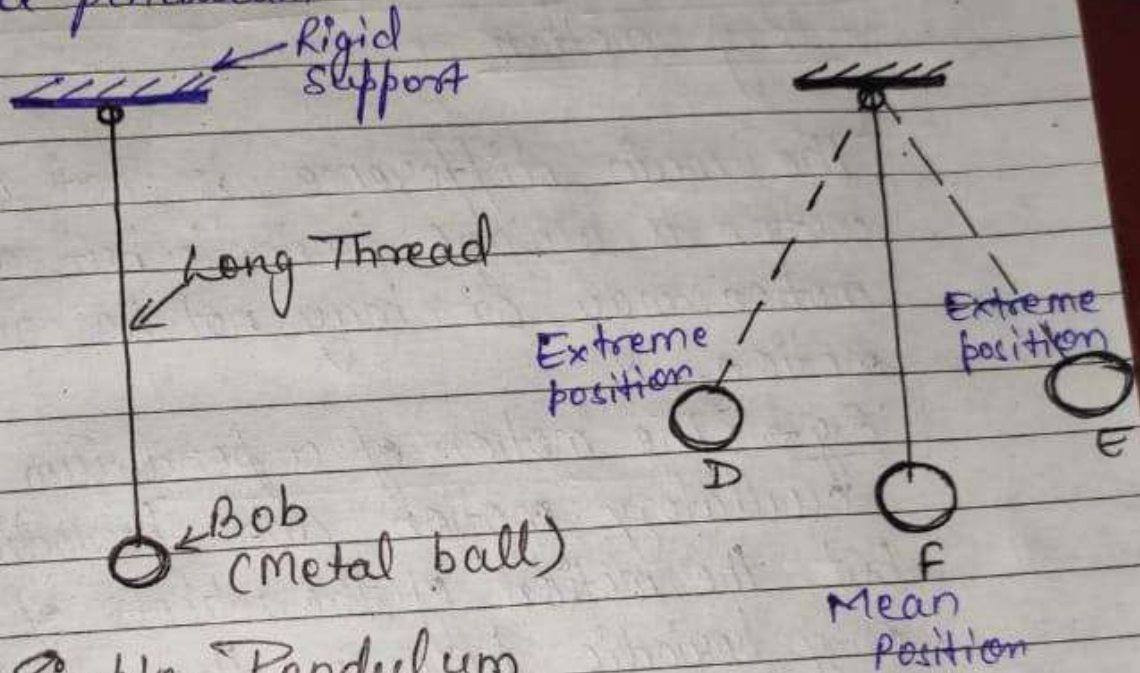 Rigid
Support
Long Thread
Bob
(Metal ball)
Extreme
position
D
Extreme
position
E
F
Mean
Position
Pendulum